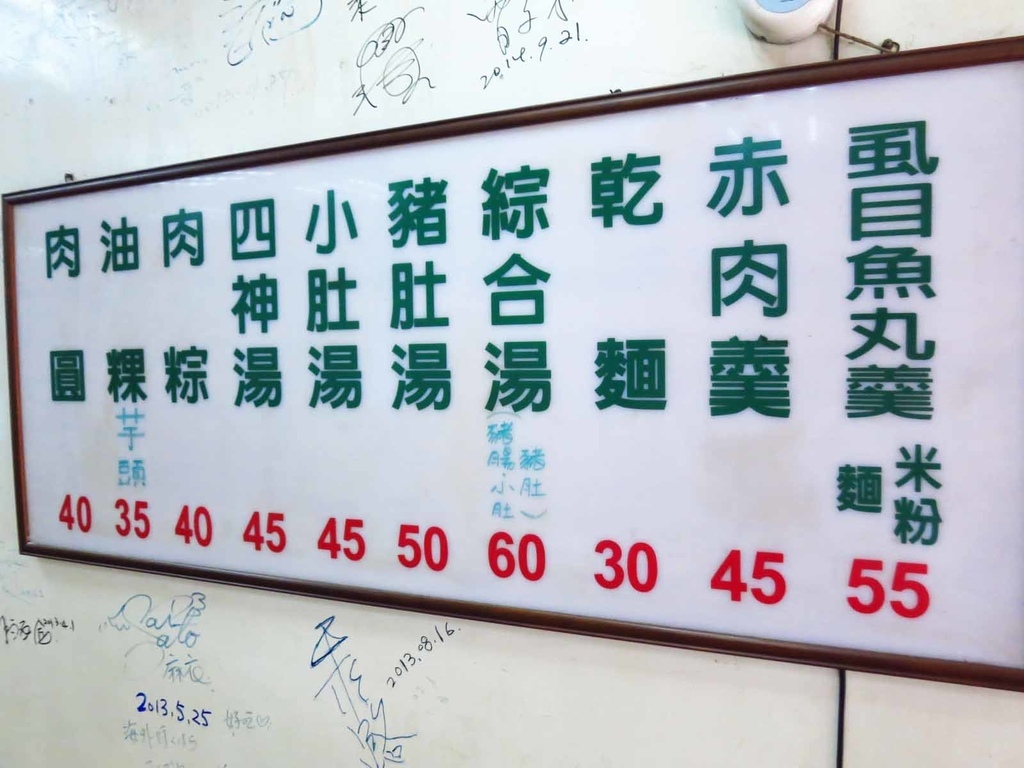 2014.9.21.
虱目魚丸羹
米粉
麵
55
赤肉羹
45
乾麵
30
綜合湯
(豬肚
豬腸小肚)
60
豬肚湯
50
小肚湯
45
四神湯
45
肉粽
40
油粿
芋頭
35
肉圓
40
2013.08.16.
麻衣
2013.5.25